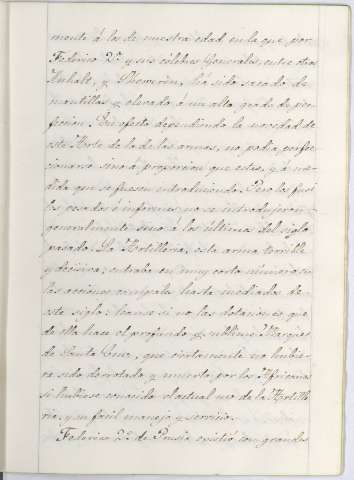 mente á los de nuestra edad en la que por
Federico 2º y sus célebres Generales, entre otros
Anhalt, y Shewerin, há sido sacado de
mantillas, y elevado á un alto grado de per-
feccion. En efecto dependiendo la novedad de
este Arte de la de las armas, no podia perfec-
cionarse sino á proporcion que estas, y á me-
dida que se fuesen introduciendo. Pero los fusi-
les pesados é informes no se introdujeron
generalmente sino á los últimos del siglo
pasado. La Artilleria, esta arma terrible
y decisiva; entraba en muy corto número en
las acciones campales hasta mediados de
este siglo: leanse si no las dotaciones que
de ella hace el profundo y sublime Marques
de Santa Cruz, que ciertamente no hubie-
ra sido derrotado y muerto por los Africanos
si hubiese conocido el actual uso de la Artille-
ria, y su facil manejo y servicio.
Federico 2º de Prusia existió con grandes